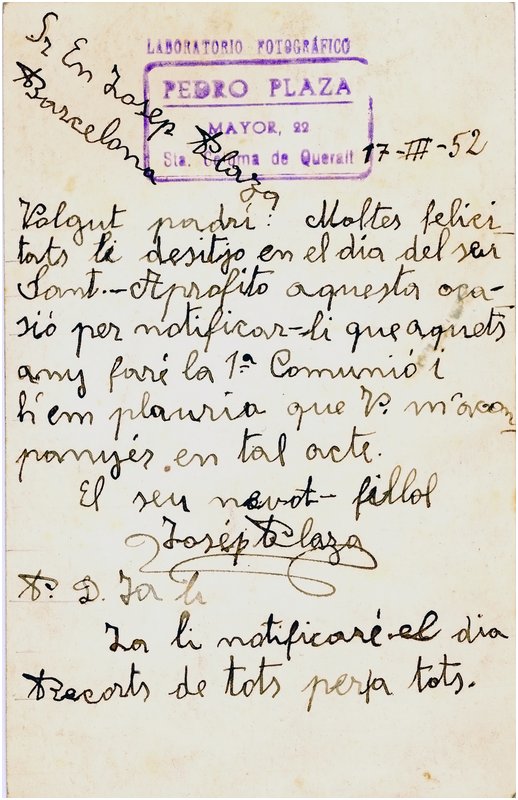 LABORATORIO FOTOGRÁFICO
PEDRO PLAZA
MAYOR, 22
Sta. Coloma de Queralt
Sr En Josep Plaza
Barcelona
17-III-52
Volgut padrí: Moltes felici
tats li desitjo en el dia del seu
Sant.- Aprofito aquesta oca-
sió per notificar-li que aquets
any faré la 1ª Comunió i
h'em plauria que Vº m'acom
panyés en tal acte.
El seu nevot-fillol
Josép Plaza
P. D. Ja li
Ja li notificaré el dia
Recorts de tots per a tots.